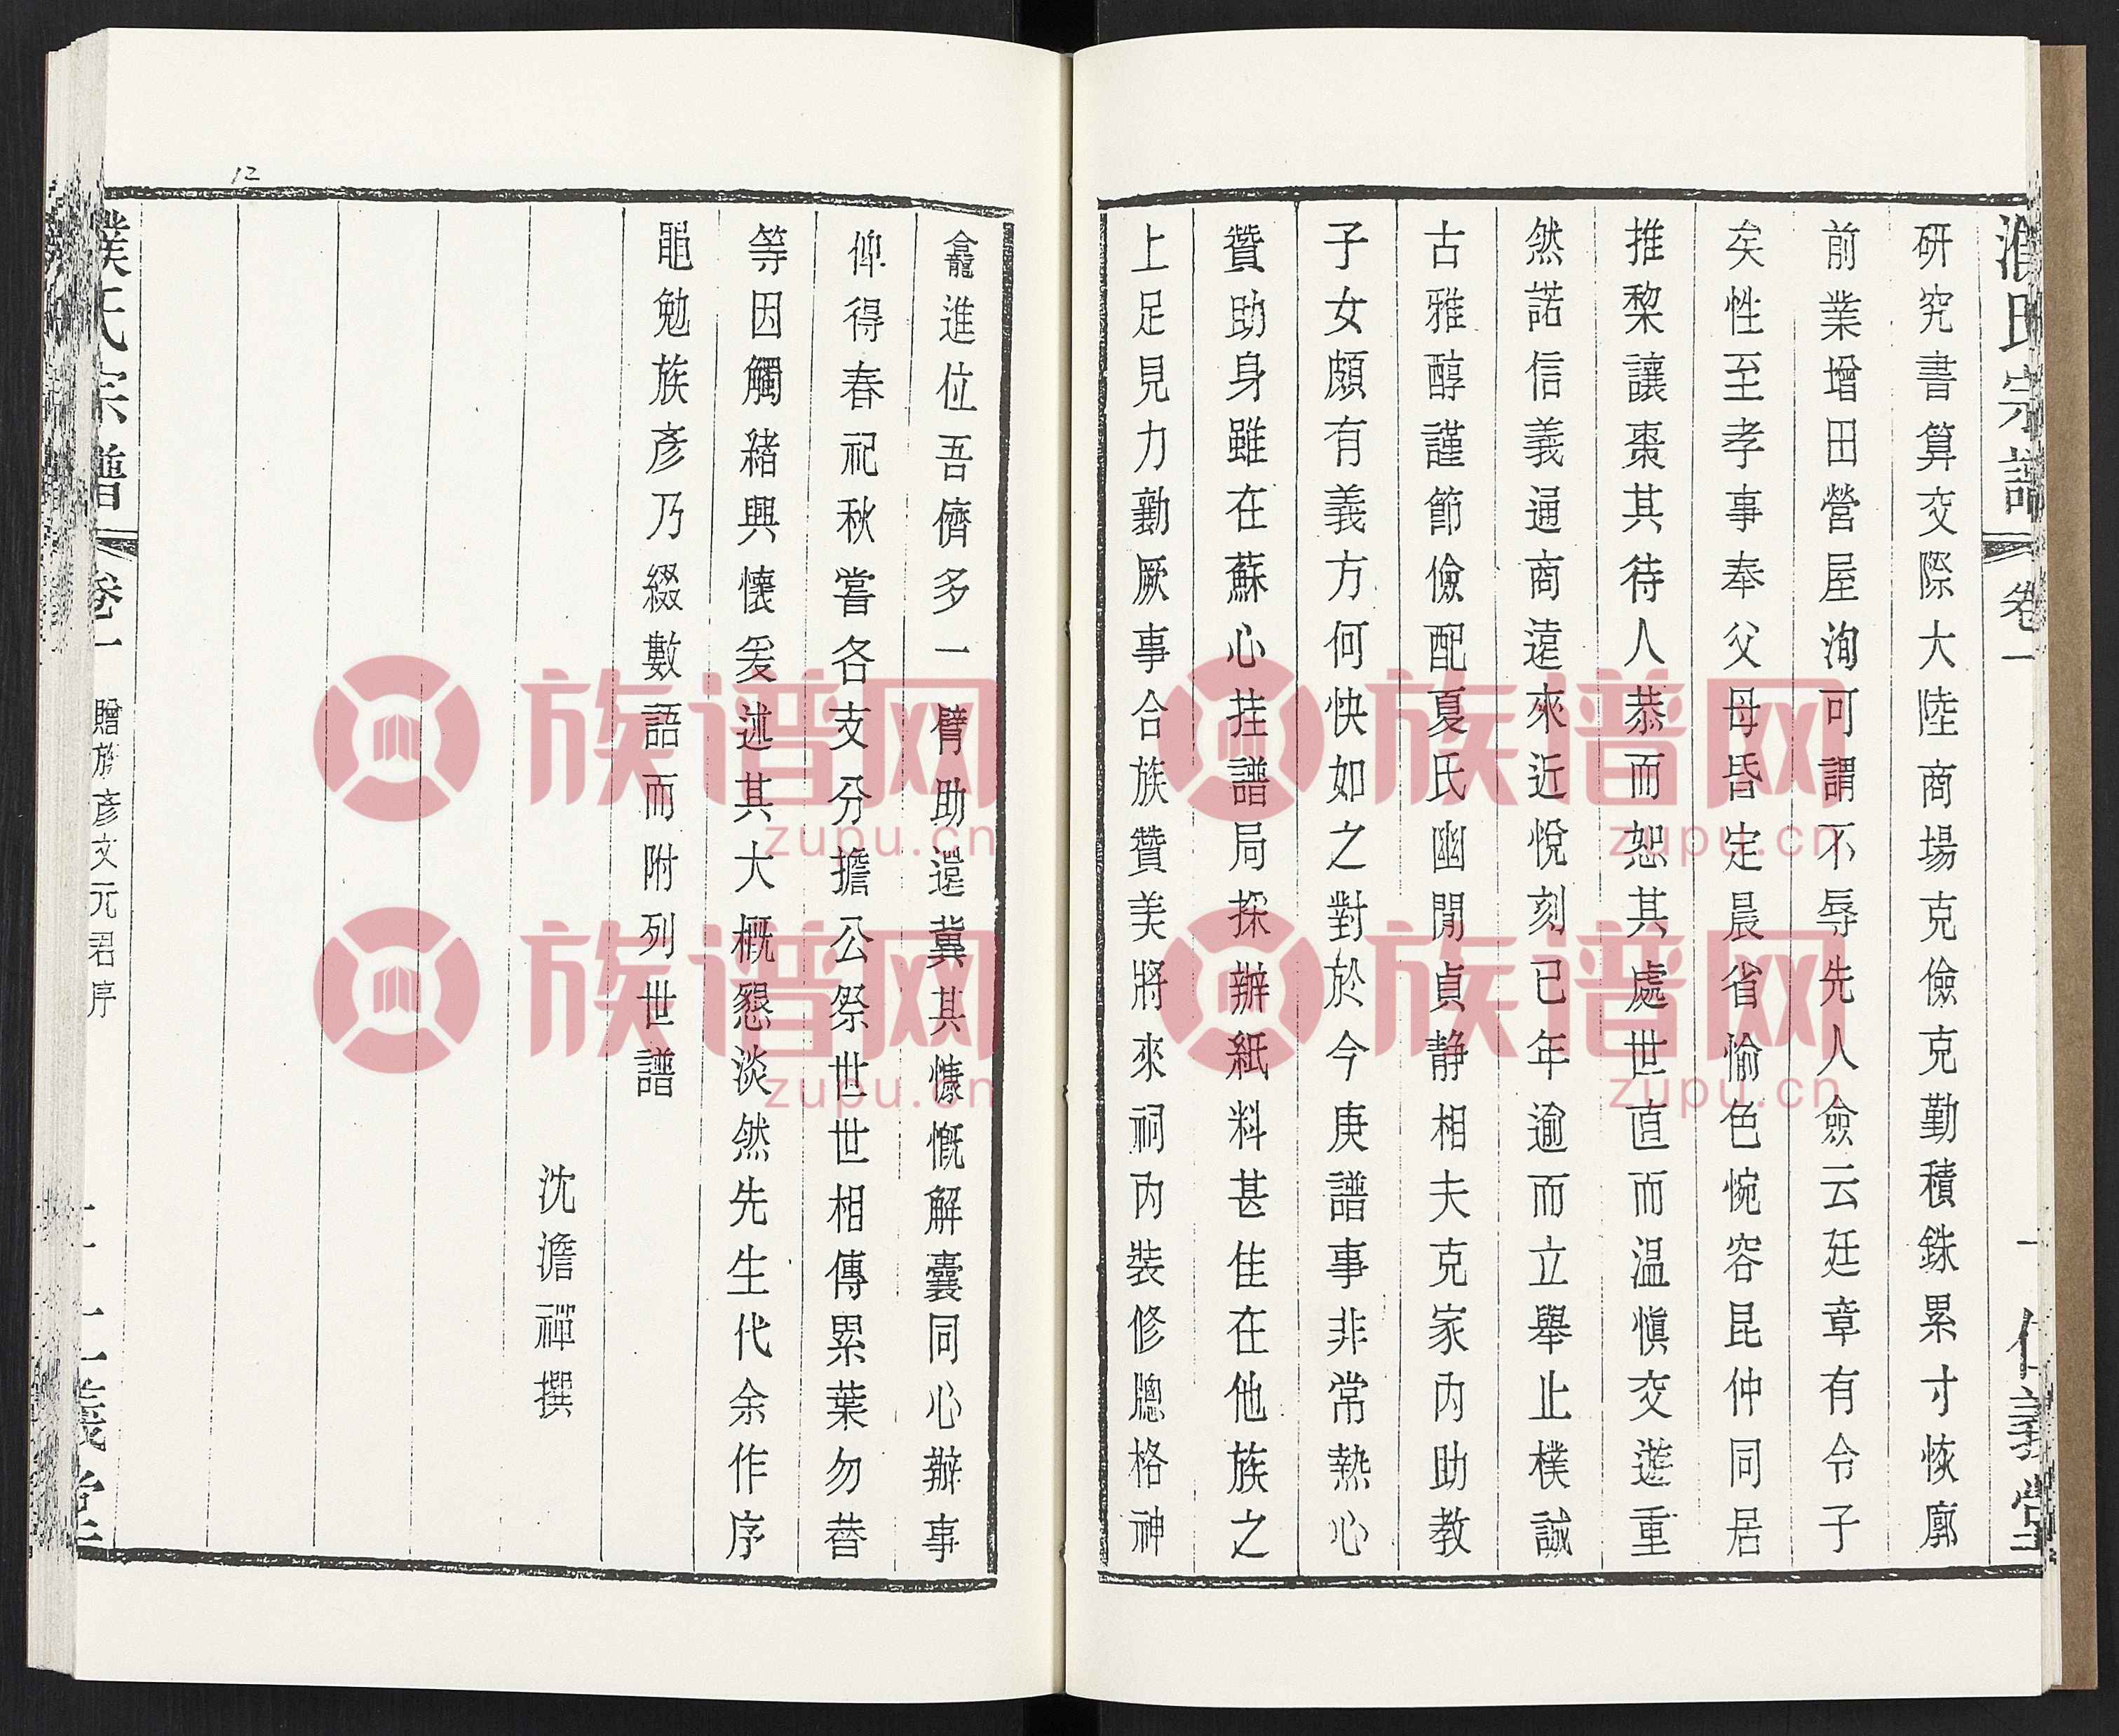 濮氏宗譜
卷一
仁義堂
研究書算交際大陸商場克儉克勤積銖累寸恢廓
前業增田營屋洵可謂不辱先人僉云廷章有令子
矣性至孝事奉父母昏定晨省愉色惋容昆仲同居
推黎讓棗其待人恭而恕其處世直而溫慎交遊重
然諾信義通商遠來近悅刻已年逾而立舉止樸誠
古雅醇謹節儉配夏氏幽閒貞静相夫克家內助教
子女頗有義方何快如之對於今庚譜事非常熱心
贊助身雖在蘇心挂譜局採辦紙料甚佳在他族之
上足見力勷厥事合族贊美將來祠內裝修牕格神
龕進位吾儕多一臂助還冀其慷慨解囊同心辦事
俾得春祀秋嘗各支分擔公祭世世相傳累葉勿替
等因觸緒興懷爰述其大概懇淡然先生代余作序
黽勉族彥乃綴數語而附列世譜
沈澹禪撰
濮氏宗譜
卷一
贈族彥文元君序
仁義堂
12
族谱网
zupu.cn
族谱网
zupu.cn
族谱网
zupu.cn
族谱网
zupu.cn